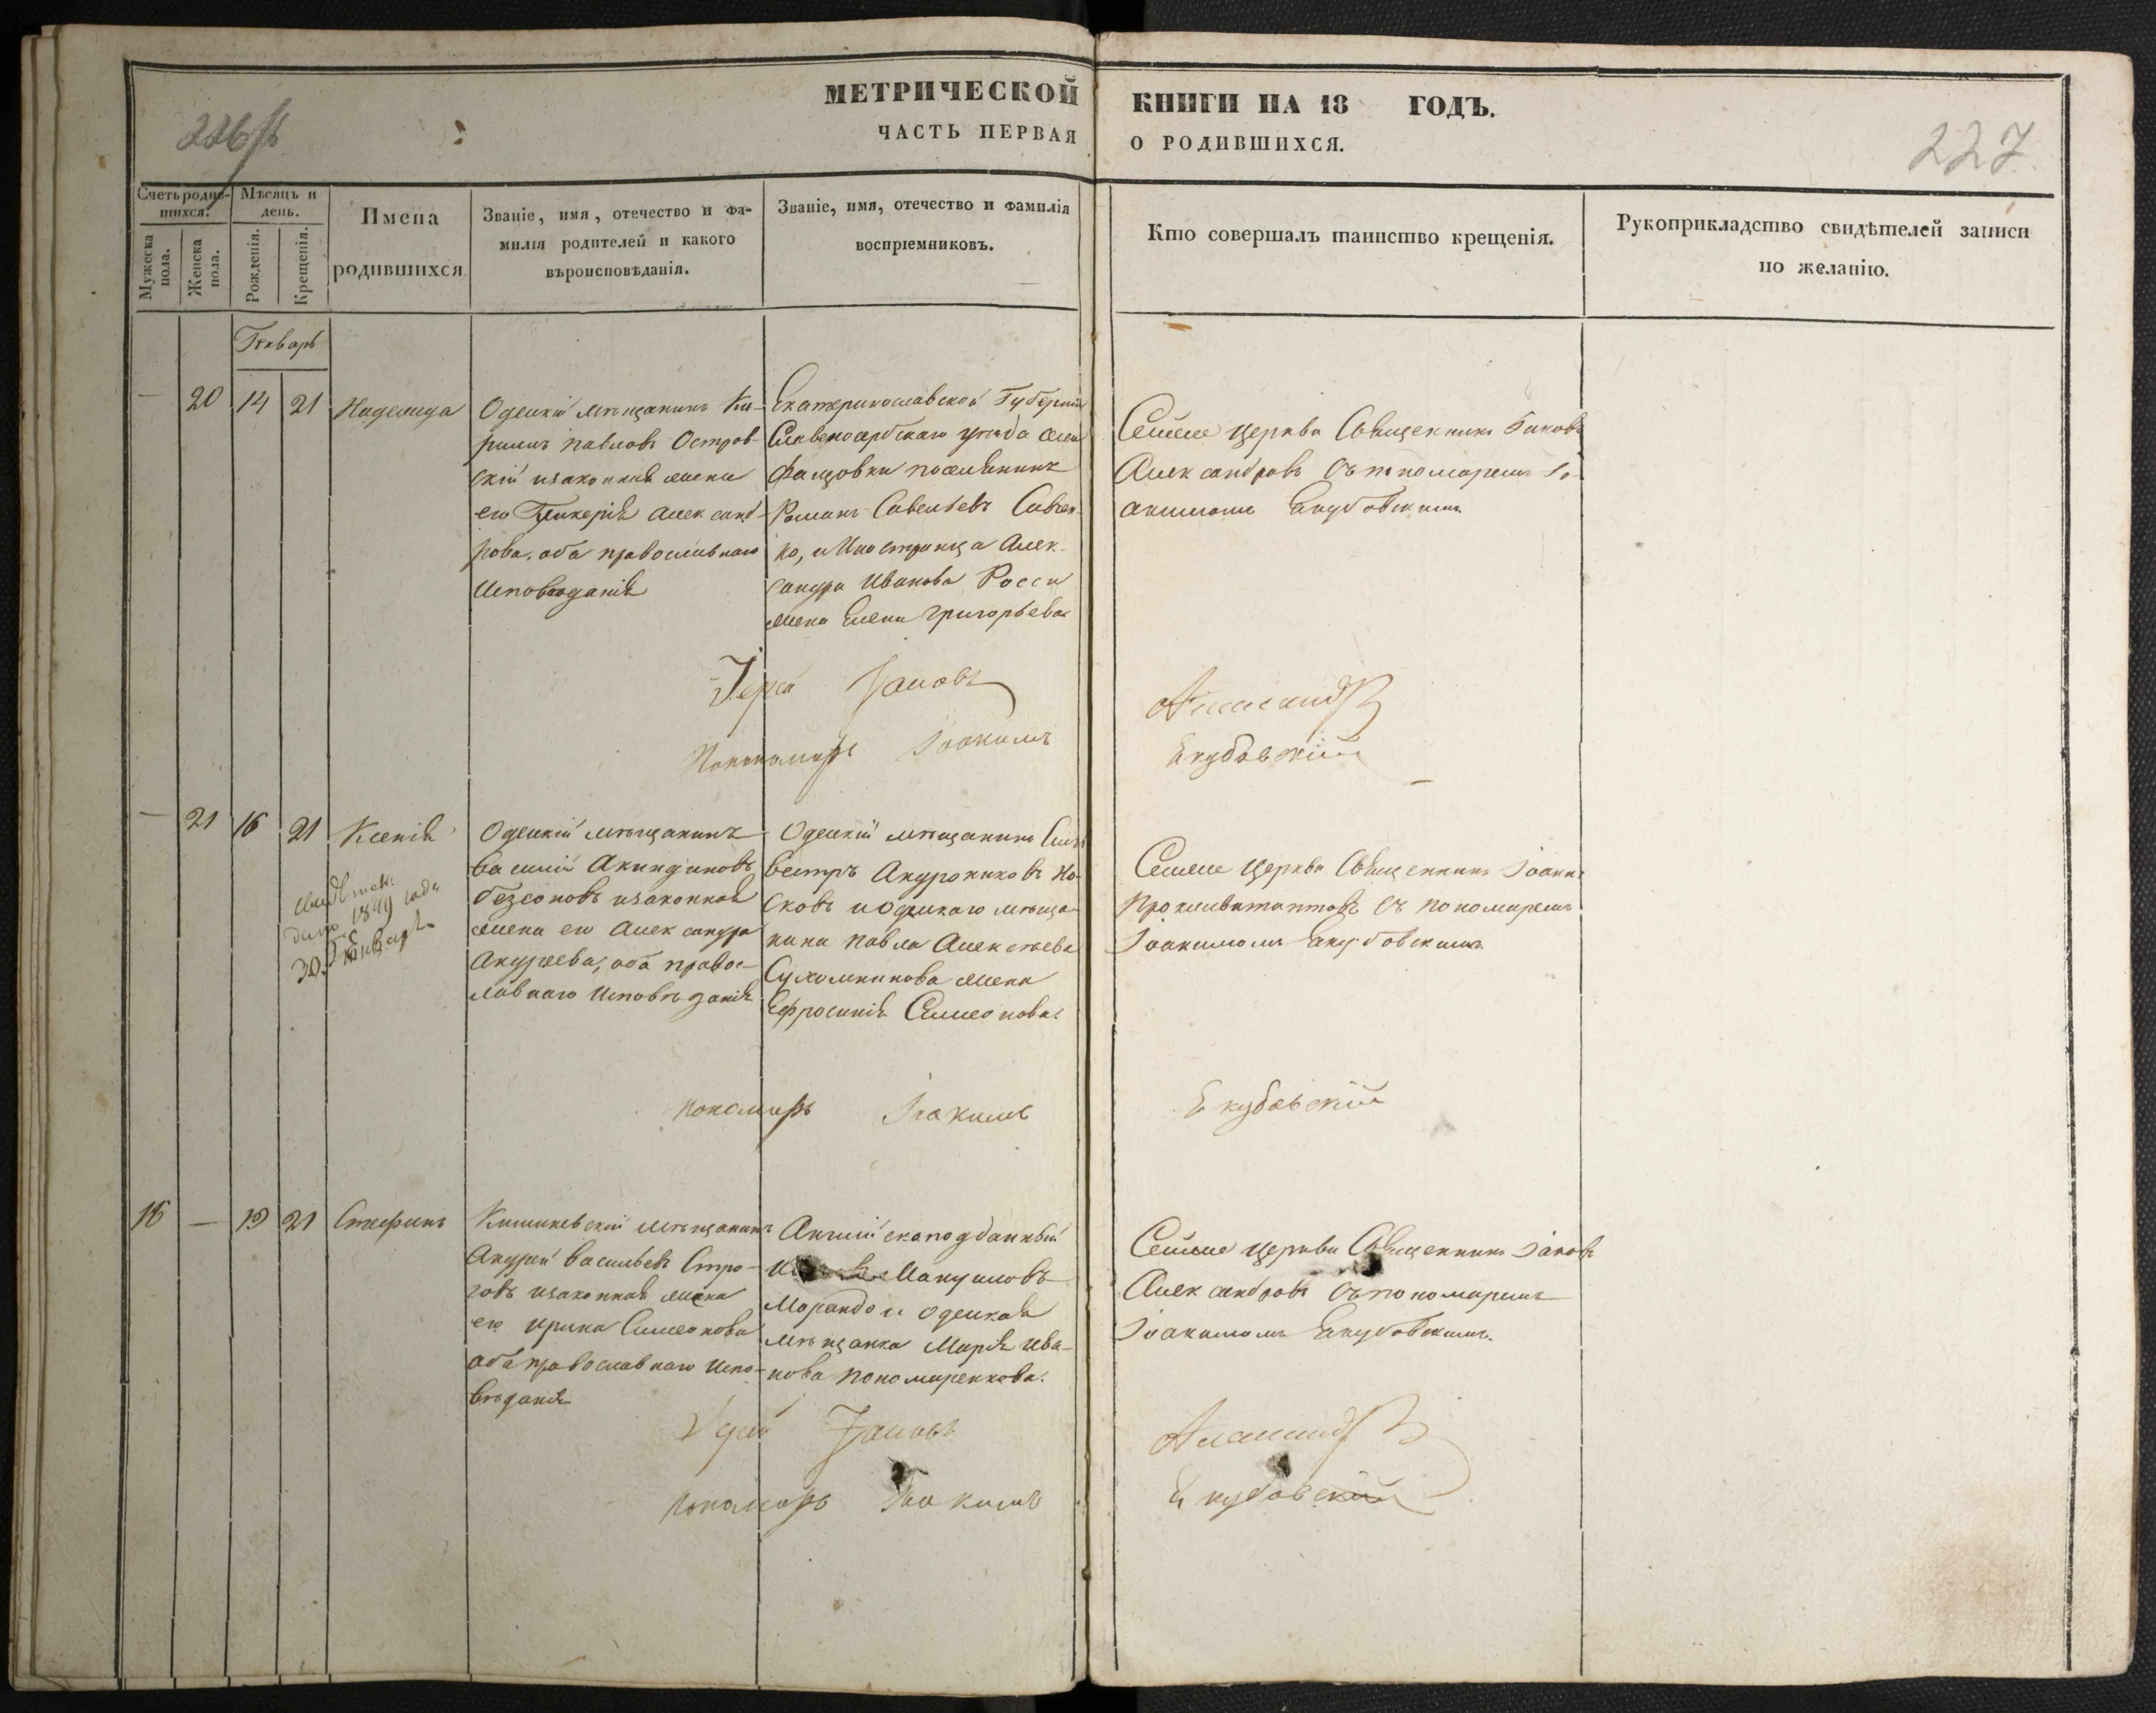 226 об
227
МЕТРИЧЕСКОЙ КНИГИ НА 18 ГОДЪ.
ЧАСТЬ ПЕРВАЯ О РОДИВШИХСЯ.
Счетъ родив-
шихся.
Мужеска
пола.
Женска
пола.
Мѣсяцъ и
день.
Рожденія.
Крещенія.
Имена
родившихся
Званіе, имя, отечество и фа-
милія родителей и какого
вѣроисповѣданія.
Званіе, имя, отечество и фамилія
воспріемниковъ.
Кто совершалъ таинство крещенія.
Рукоприкладство свидѣтелей записи
по желанію.
Генварь
— 20 14 21 Надежда
Одескій мѣщанинъ Ки-
рилъ Павловъ Остров-
скій и законная жена
его Гликерія Александ-
рова. оба православнаго
Исповѣданія
Екатеринославской Губерніи
Славеносербскаго уѣзда
Фащовки поселянинъ
Романъ Савельевъ Савчен-
ко, и Иностранца Алек-
сандра Иванова Росси
жена Елена Григорьева
Сейже церкви Священникъ Іаковъ
Александровъ съ пономаремъ Іо-
акимомъ Екубовскимъ
Іерей Іаковъ Александровъ
Пономарь Іоакимъ Екубовскій
— 21 16 21 Ксенія
свидѣтел.
дано 1849 года
30 Января
Одескій мѣщанинъ
Василій Акиндиновъ
Безсоновъ и законная
жена его Александра
Андреева, оба правос-
лавнаго Исповѣданія
Одескій мѣщанинъ Сил-
вестръ Андрониковъ Но-
сковъ и одескаго мѣща-
нина Павла Алексѣева
Сухомлинова жена
Ефросинія Симеонова
Сейже церкви Священникъ Іоаннъ
съ пономаремъ
Іоакимомъ Екубовскимъ
пономарь Іоакимъ Екубовскій
16 — 19 21 Стефанъ
Кишиневскій мѣщанинъ
Андрей Васильевъ Стро-
говъ и законная жена
его Ирина Симеонова
оба православнаго Испо-
вѣданія
Англійскоподданный
Мануиловъ
Морандо и одеская
мѣщанка Марія Ива-
нова Пономаренкова.
Сейже церкви Священникъ Іаковъ
Александровъ съ пономаремъ
Іоакимомъ Екубовскимъ.
Іерей Іаковъ Александровъ
пономарь Іоакимъ Екубовскій